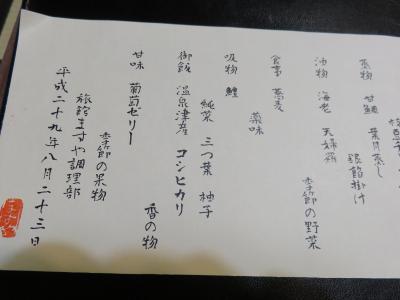 蒸物　甘鯛　葉月蒸し
銀餡掛け
油物　海老　天婦羅
季節の野菜
食事　蕎麦
薬味
吸物　鯉
純菜　三つ葉　柚子
御飯　温泉津産　コシヒカリ
香の物
甘味　葡萄ゼリー
季節の果物
旅館ますや調理部
平成二十九年八月二十三日